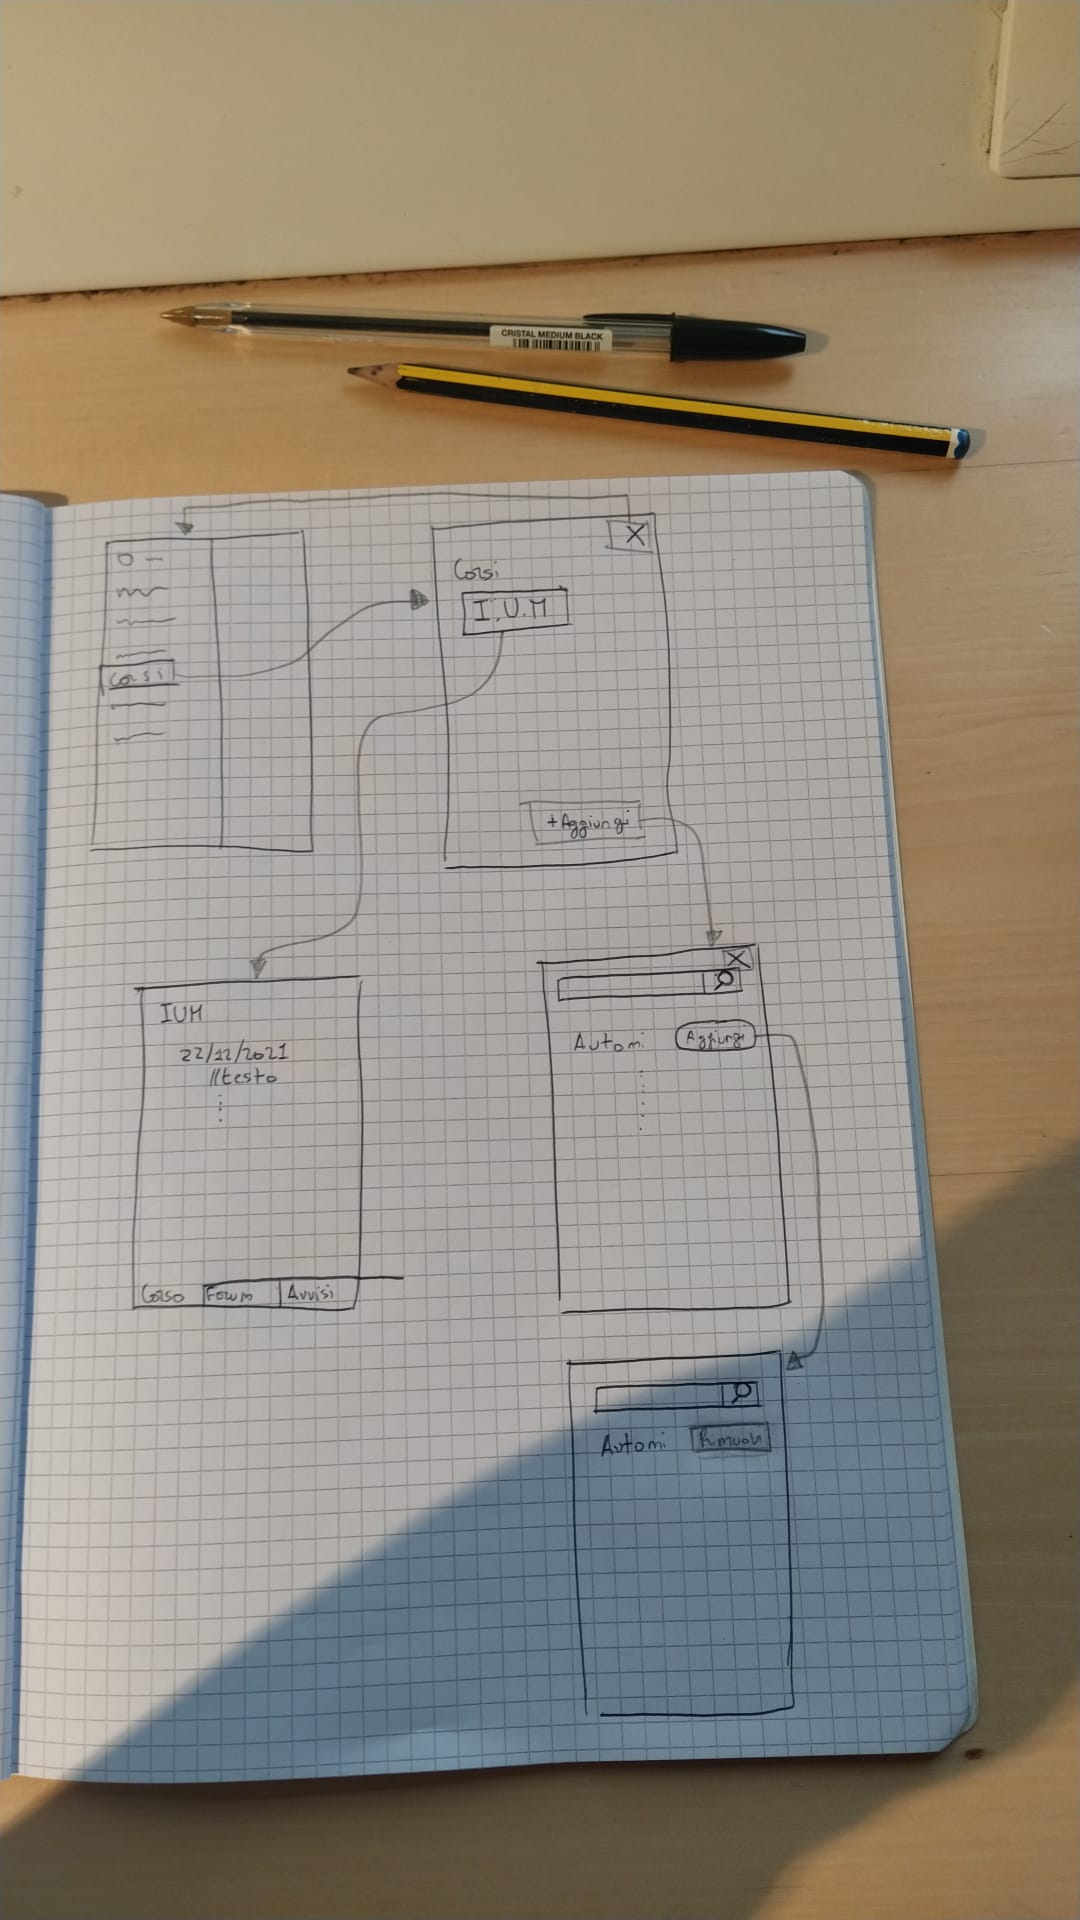 CRISTAL MEDIUM BLACK
Corsi
X
Corsi
I.U.M
+Aggiungi
IUM
22/12/2021
//testo
Corso Forum Avvisi
X
Automi Aggiungi
Automi Rimuovi